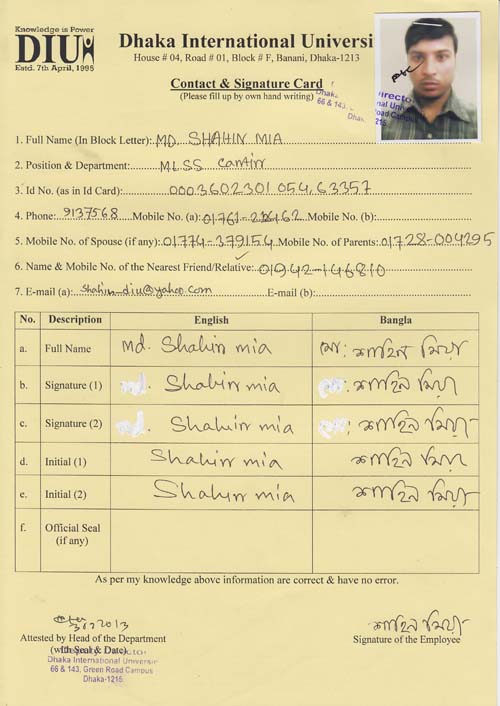 Knowledge is Power
DIU
Estd. 7th April, 1995
Dhaka International Universi
House # 04, Road # 01, Block # F, Banani, Dhaka-1213
Contact & Signature Card
(Please fill up by own hand writing)
Dhaka
66 & 143,
Dha
irecto
nal Univer
Road Campu
1215
1. Full Name (In Block Letter): MD. SHAHIN MIA
2. Position & Department: MLSS
3. Id No. (as in Id Card): 0003602301054,63357
4. Phone: 9137568 Mobile No. (a): Mobile No. (b):
5. Mobile No. of Spouse (if any): 01774-379154 Mobile No. of Parents: 01728-004295
6. Name & Mobile No. of the Nearest Friend/Relative: 01942-146810
7. E-mail (a): shahin_diu@yahoo.com E-mail (b):
No. Description English Bangla
a. Full Name Md. Shahin mia মো: শাহিন মিয়া
b. Signature (1) Shahin mia শাহিন মিয়া
c. Signature (2) Shahin mia শাহিন মিয়া
d. Initial (1) Shahin mia শাহিন মিয়া
e. Initial (2) Shahin mia শাহিন মিয়া
f. Official Seal
(if any)
As per my knowledge above information are correct & have no error.
2013 শাহিন মিয়া
Attested by Head of the Department Signature of the Employee
(with Seal & Date)
Dhaka International Universit
66 & 143, Green Road Campus
Dhaka-1215.